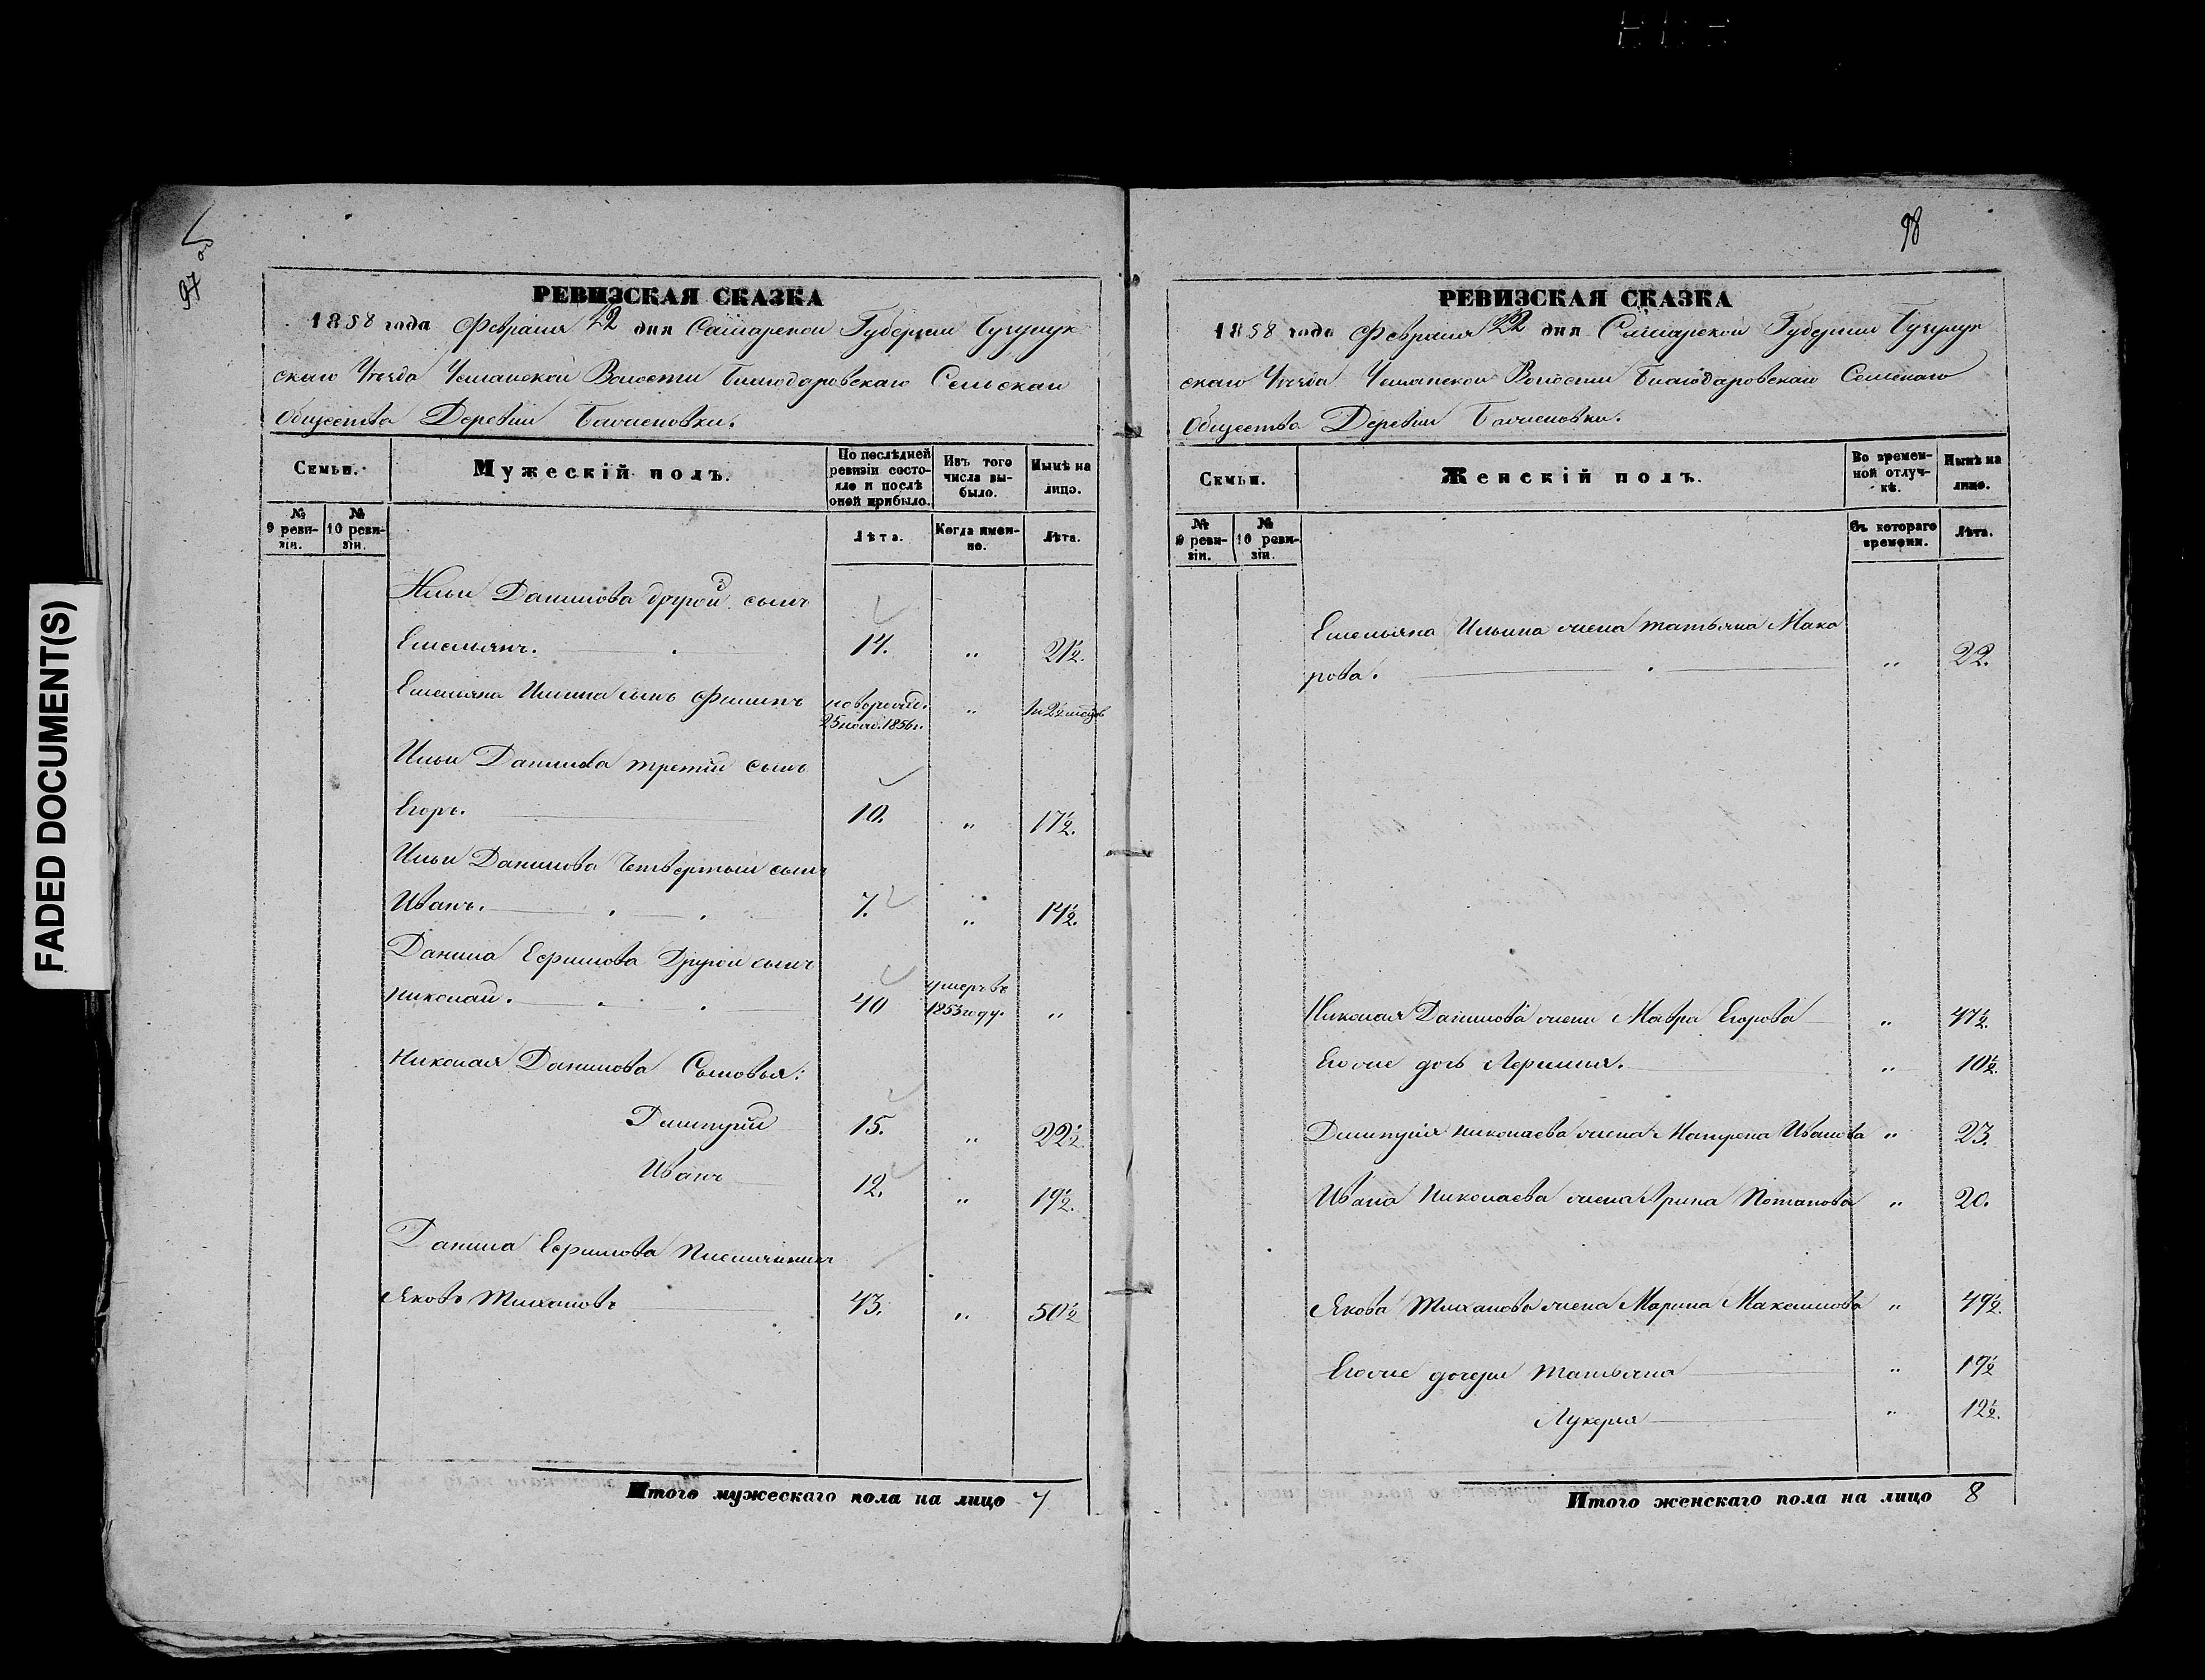 97 об
РЕВИЗСКАЯ СКАЗКА
1858 года Февраля 22 дня Самарской Губернии Бугурус
скаго Уѣзда Волости Благодаровскаго Сельскаго
Общества Деревни
Семьи. Мужескій полъ. По послѣдней ревизіи состояло и послѣ оной прибыло. Изъ того числа выбыло. Нынѣ на лицо.
№ 9 ревизіи. № 10 ревизіи. Лѣта. Когда именно. Лѣта.
Ильи Данилова другой сынъ
Емельянъ. 14. „ 21½.
Емельяна Ильина сынъ Филипъ новорожд. 25 1856 г. „
Ильи Данилова третій сынъ
Егоръ. 10. „ 17½.
Ильи Данилова Четвертый сынъ
Иванъ. 7. „ 14½.
Данила Ефимова Другой сынъ
Николай. 40 умеръ въ 1853 году. „
Николая Данилова Сыновья:
Дмитрій 15. „ 22½.
Иванъ 12. „ 19½.
Данила Ефимова Племянникъ
Яковъ 43. „ 50½
Итого мужескаго пола на лицо 7
98
РЕВИЗСКАЯ СКАЗКА
1858 года Февраля 22 дня Самарской Губернии Бугурус
скаго Уѣзда Волости Благодаровскаго Сельскаго
Общества Деревни
Семьи. Женскій полъ. Во временной отлучкѣ. Нынѣ на лицо.
№ 9 ревизіи. № 10 ревизіи. Съ котораго времени. Лѣта.
Емельяна Ильина жена Татьяна Мака
рова. „ 22.
Николая Данилова жена Мавра Егорова „ 47½.
Его же дочь „ 10½.
Дмитрія Николаева жена Матрена Иванова „ 23.
Ивана Николаева жена Арина Потапова „ 20.
Якова жена Марина Максимова „ 49½.
Его же дочери Татьяна „ 19½
Лукерья „ 12½.
Итого женскаго пола на лицо 8
FADED DOCUMENT(S)